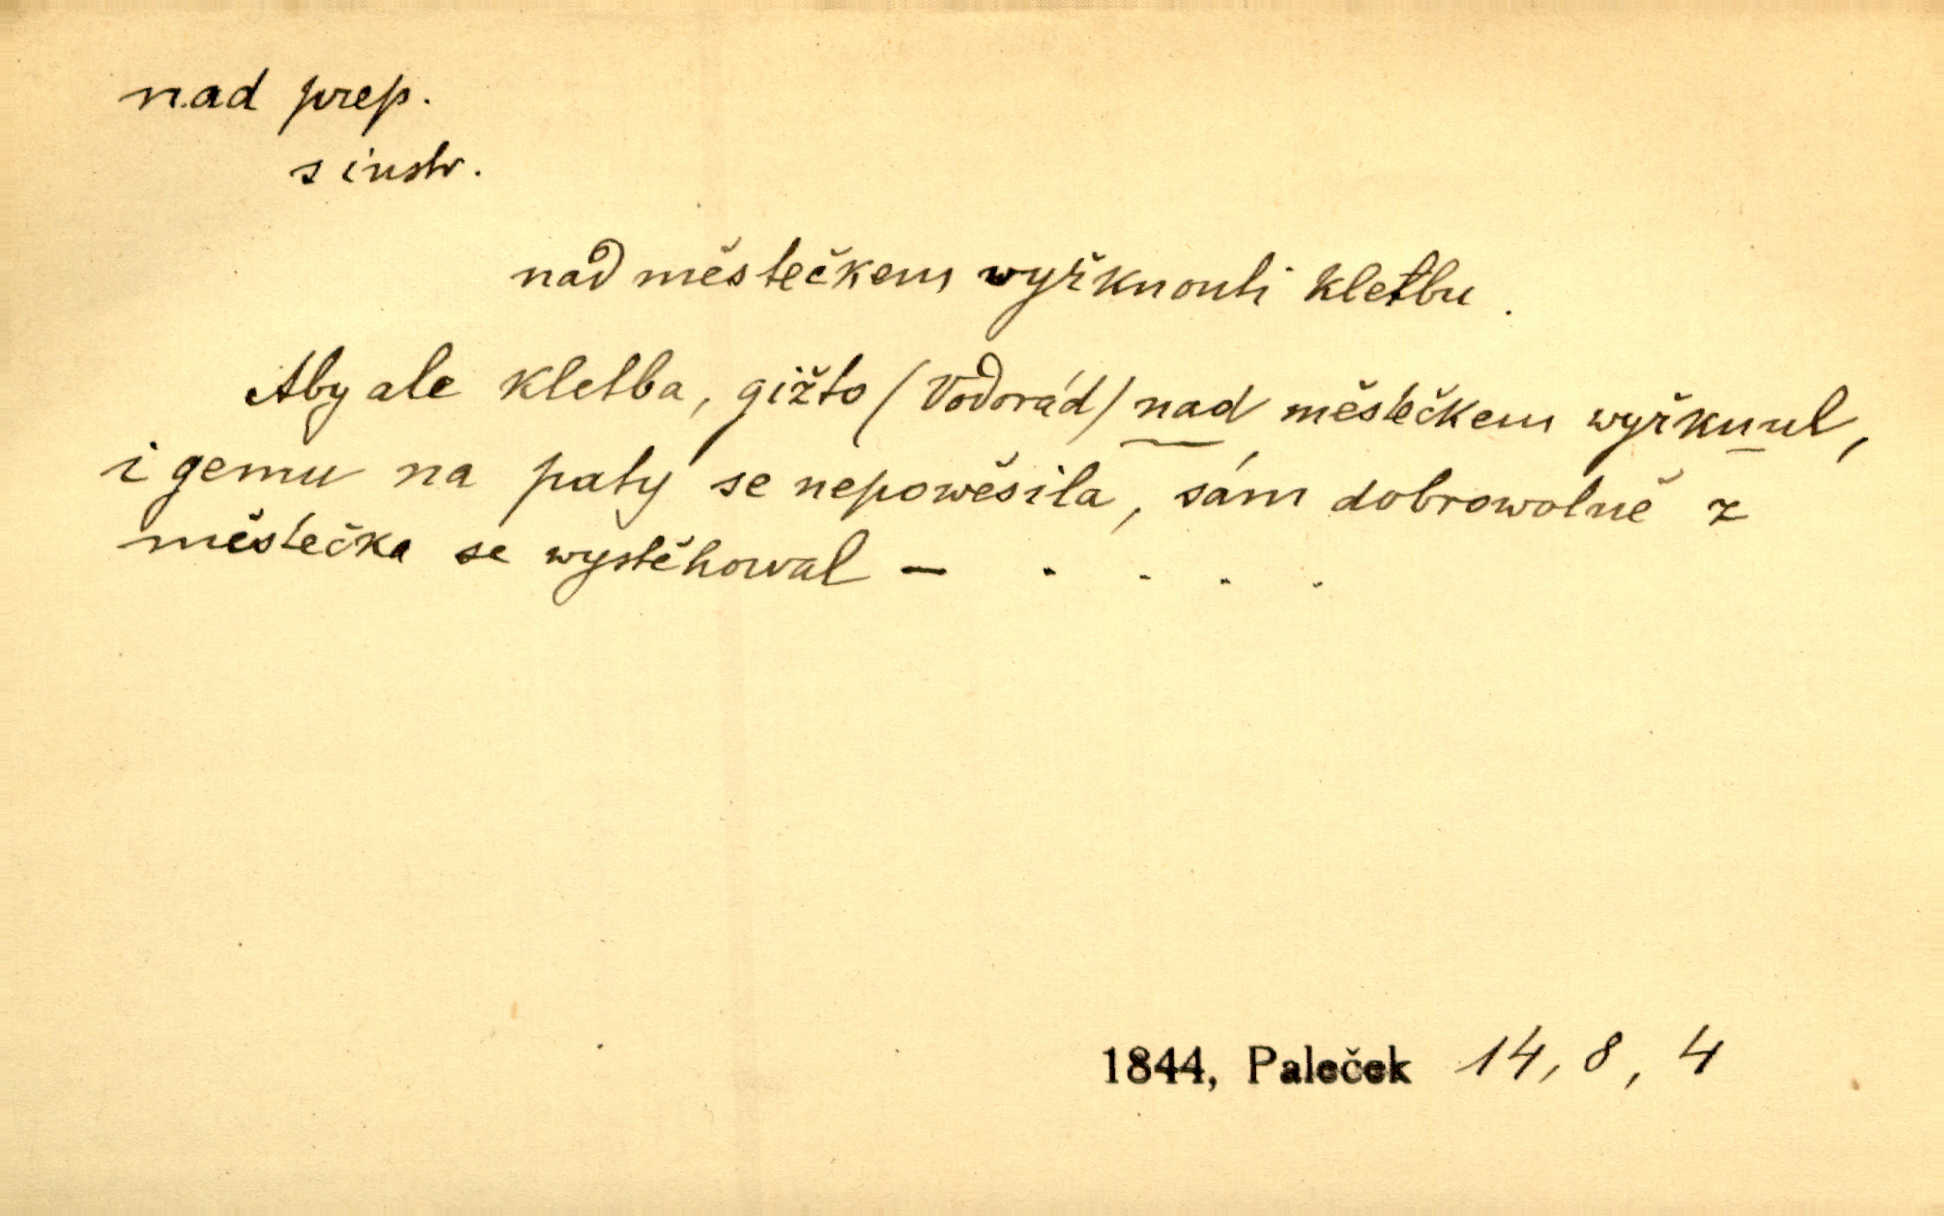 nad prep.
s instr.
nad městečkem wyřknouti kletbu.
Aby ale kletba, gižto (Vodorád) nad městečkem wyřknul,
i gemu na paty se nepowěsila, sám dobrowolně z
městečka se wystěhowal – . . . .
1844, Paleček 14, 8, 4